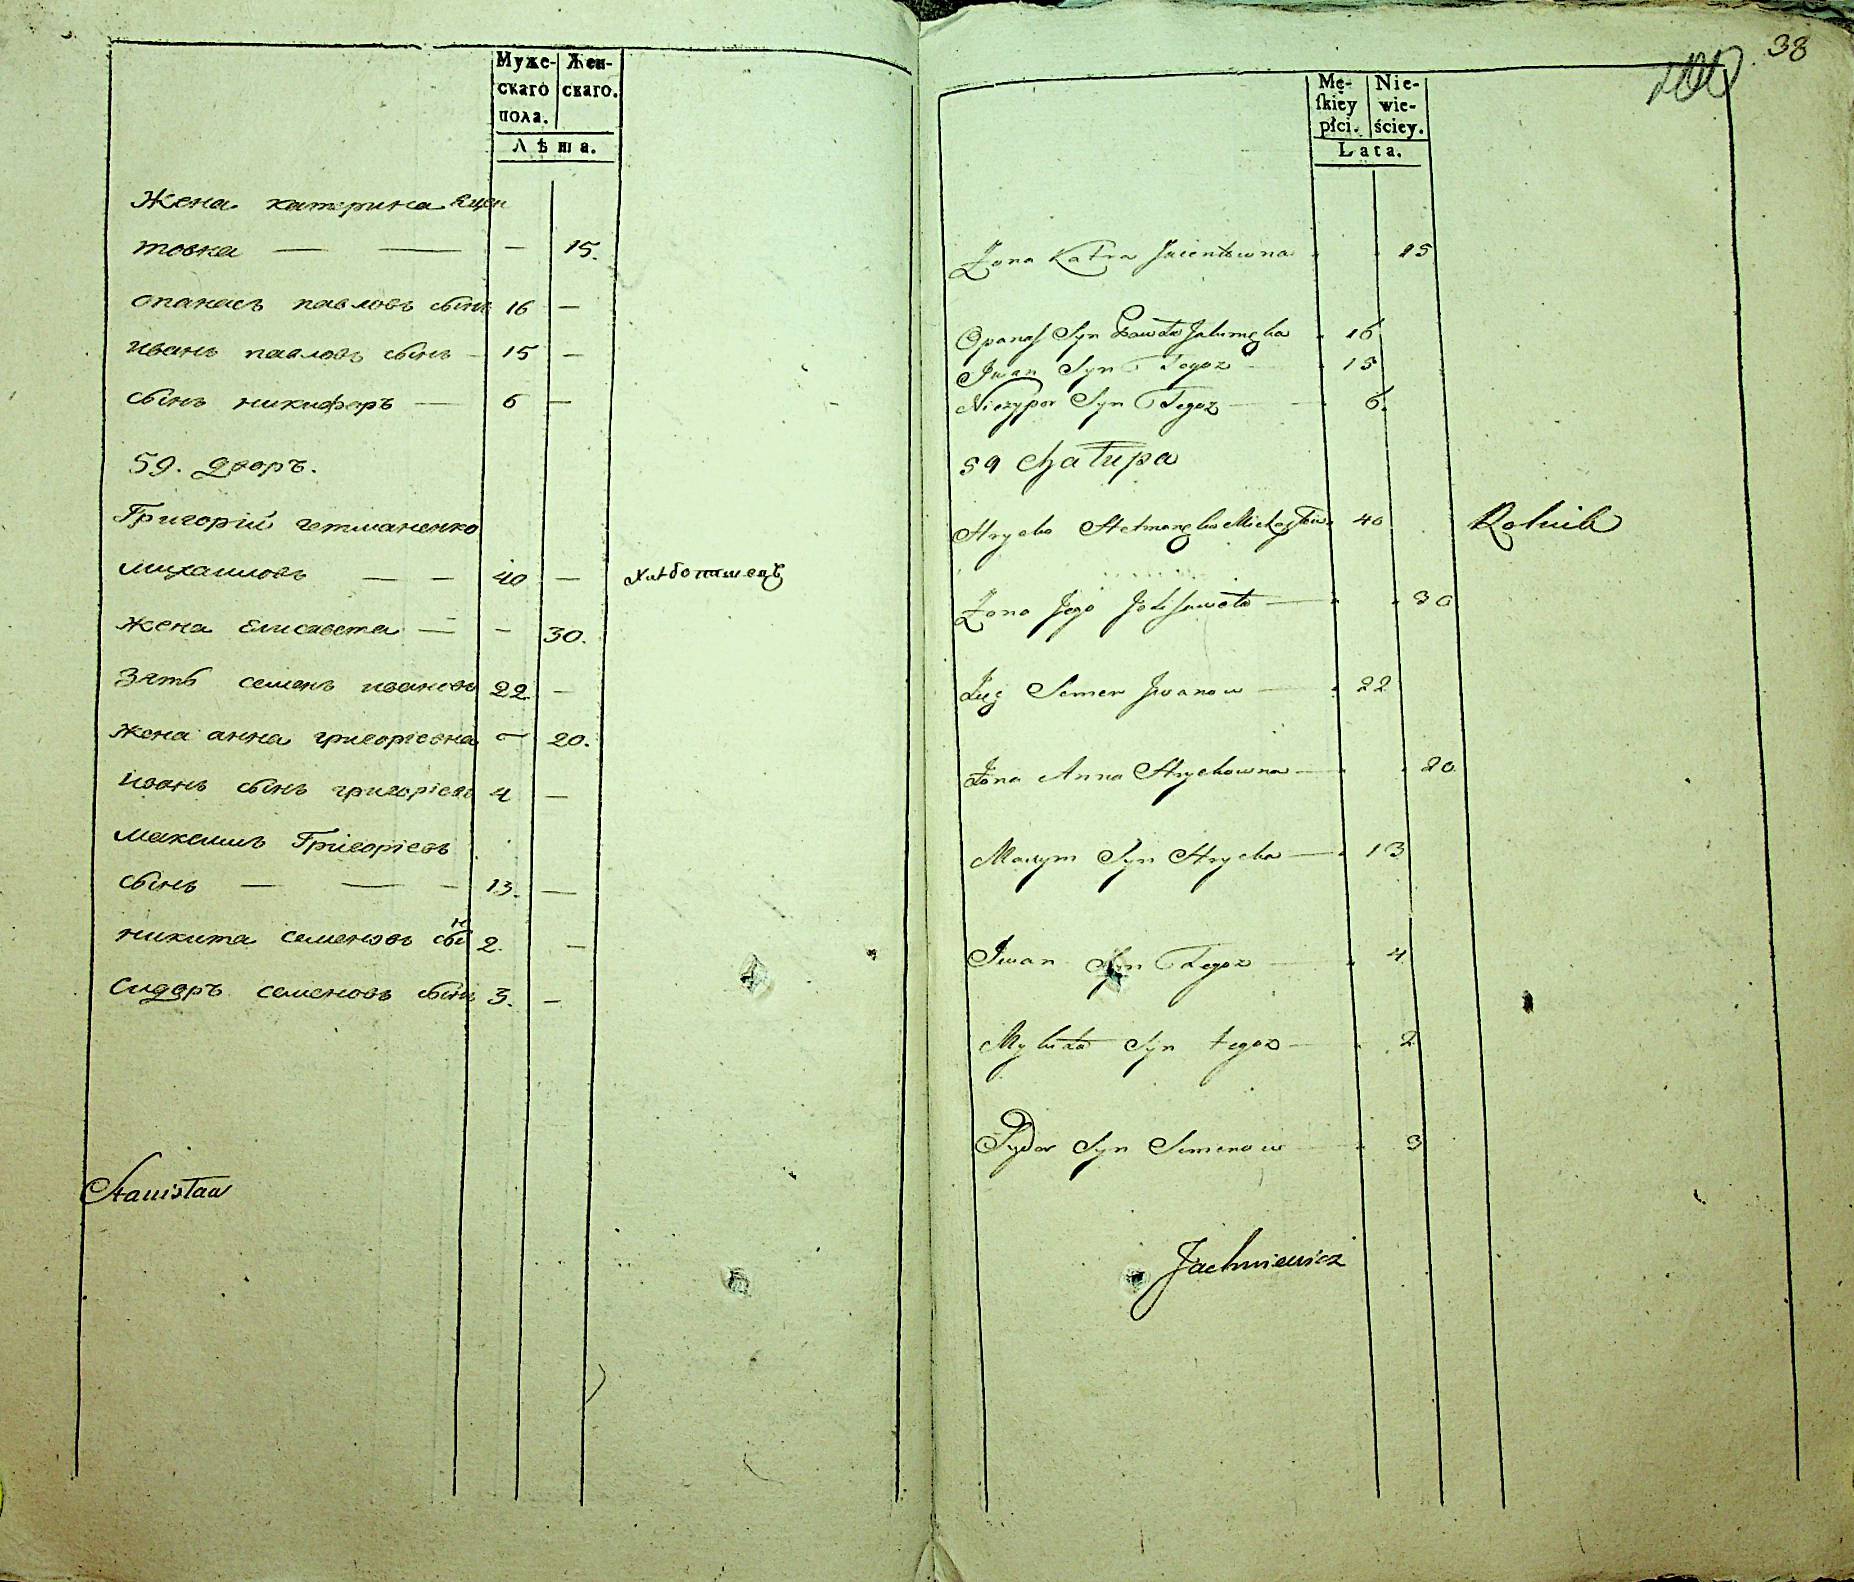 Муже- Жен-
скаго скаго.
пола.
Лѣта.
Жена катерина Яцен
товна — — — 15.
опанасъ павловъ сынъ 16 —
иванъ павловъ сынъ — 15 —
сынъ никифоръ — 6 —
59. дворъ.
Григорій гетманенко
михаиловъ — — 40 — хлѣбопашецъ
жена Елисавета — — 30.
Зять семенъ ивановъ 22 —
жена анна григоріевна — 20.
иванъ сынъ григоріевъ 4 —
максимъ Григоріевъ
сынъ — — — 13. —
никита семеновъ сынъ 2. —
Сидоръ семеновъ сынъ 3. —
Stanisław
38
Mę- Nie-
skiey wie-
płci. ściey.
Lata.
Żona Katra Jacentowna 15
Opanas Syn Pawła 16
Iwan Syn Tegoz 15
Niczypor Syn Tegoz 6.
59 Chałupa
Hrycko Hetmanęko Michayłow 40 Rolnik
Żona Jego 30
Zięć Semen Iwanow 22
Żona Anna Hryckowna 20
Maxym Syn Hrycka 13
Iwan Syn Tegoz 4
Mykita Syn tegoz 2
Sydor Syn Semenow 3
Jachniewicz